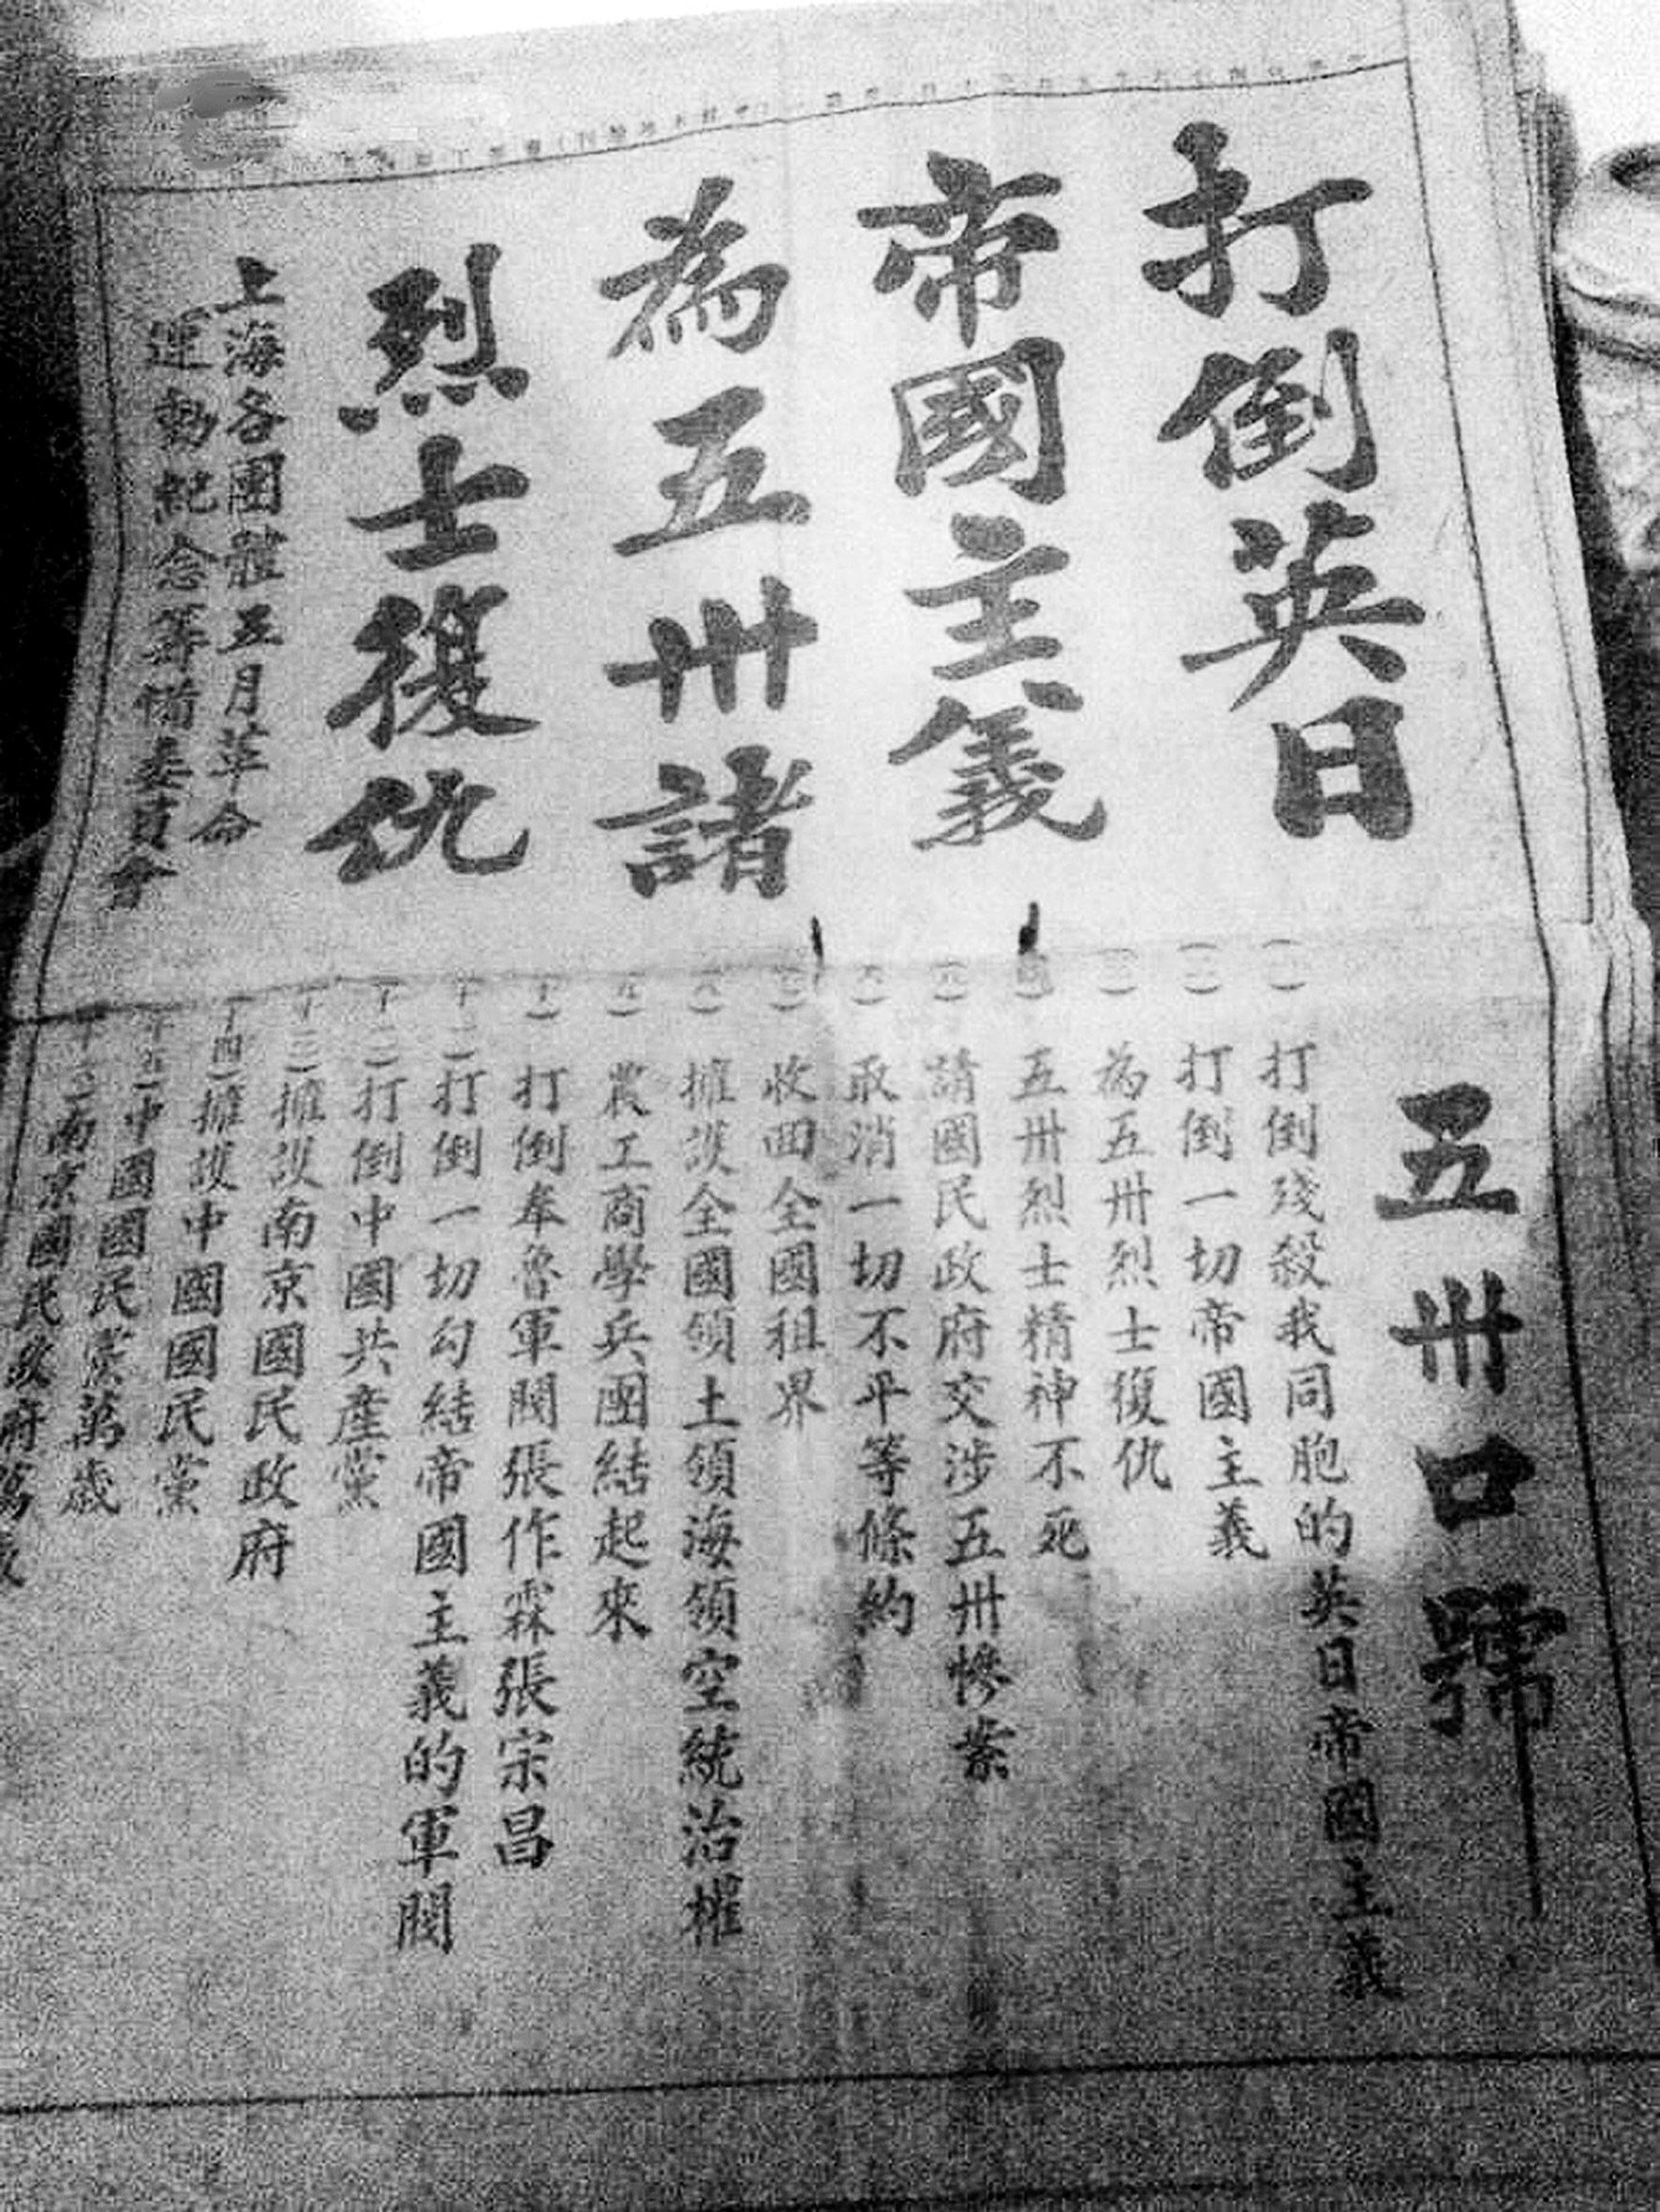 打倒英日
帝國主義
為五卅諸
烈士復仇
上海各團體五月革命
運動紀念筹備委員會
五卅口號
(一)打倒殘殺我同胞的英日帝國主義
(二)打倒一切帝國主義
(三)為五卅烈士復仇
(四)五卅烈士精神不死
(五)請國民政府交涉五卅慘案
(六)取消一切不平等條約
(七)收回全國租界
(八)擁護全國領土領海領空統治權
(九)農工商學兵團結起來
(十)打倒奉魯軍閥張作霖張宗昌
(十一)打倒一切勾結帝國主義的軍閥
(十二)打倒中國共產黨
(十三)擁護南京國民政府
(十四)擁護中國國民黨
(十五)中國國民黨萬歲
(十六)南京國民政府萬歲